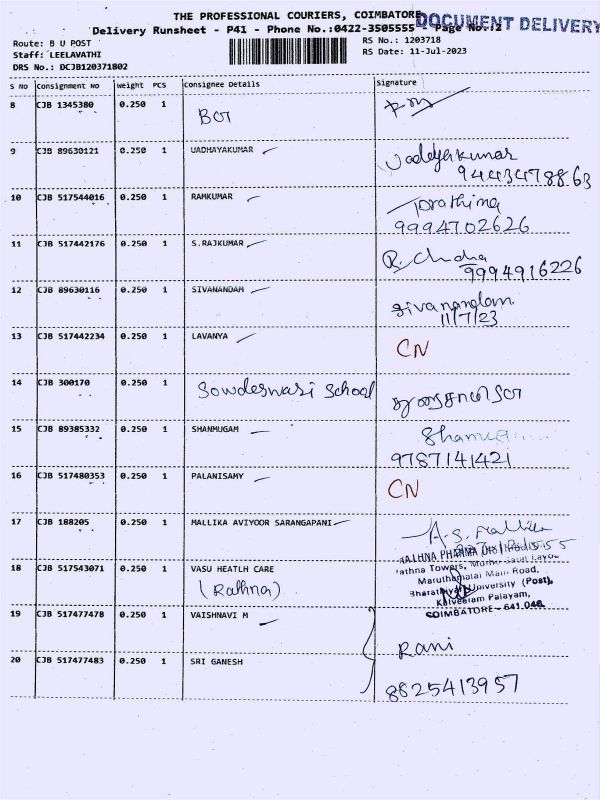 THE PROFESSIONAL COURIERS, COIMBATORE
DOCUMENT DELIVERY
Delivery Runsheet - P41 - Phone No.:0422-3505555 - Page No.:2
Route: B U POST
RS No.: 1203718
Staff: LEELAVATHI
RS Date: 11-Jul-2023
DRS No.: DCJB120371802
S No Consignment No Weight PCS Consignee Details Signature
8 CJB 1345380 0.250 1
9 CJB 89630121 0.250 1 UADHAYAKUMAR
9443478863
10 CJB 517544016 0.250 1 RAMKUMAR Prathima
9994702626
11 CJB 517442176 0.250 1 S.RAJKUMAR R. Chdra
9994916226
12 CJB 89630116 0.250 1 SIVANANDAM Sivanandam
11/7/23
13 CJB 517442234 0.250 1 LAVANYA CN
14 CJB 300170 0.250 1 Sowdeswari School
15 CJB 89385332 0.250 1 SHANMUGAM
9787141421
16 CJB 517480353 0.250 1 PALANISAMY CN
17 CJB 188205 0.250 1 MALLIKA AVIYOOR SARANGAPANI A.S. Mallika
18 CJB 517543071 0.250 1 VASU HEATLH CARE
(Rathna)
Maruthamalai Main Road,
Bharathiyar University (Post),
Kalveeram Palayam,
COIMBATORE - 641 046
19 CJB 517477478 0.250 1 VAISHNAVI M Rani
20 CJB 517477483 0.250 1 SRI GANESH 8825413957